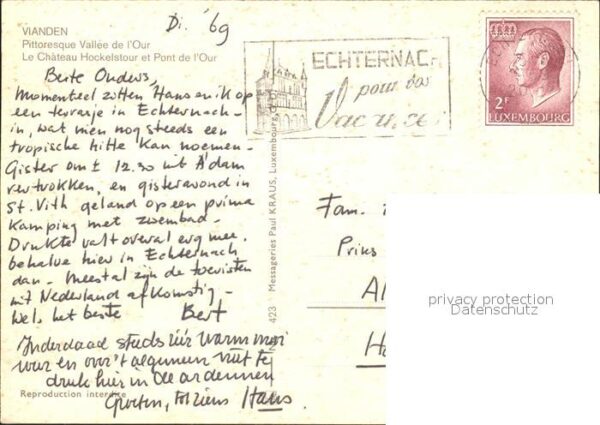 VIANDEN
Pittoresque Vallée de l'Our
Le Château Hockelstour et Pont de l'Our
Di. '69
Beste Ouders,
Momenteel zitten Hans en ik op
een terrasje in Echternach -
in, wat men nog steeds een
tropische hitte kan noemen -
Gister om ± 12.30 uit A'dam
vertrokken, en gisteravond in
St. Vith geland op een prima
Kamping met zwembad -
Drukte valt overal erg mee.
behalve hier in Echternach
dan - Meestal zijn de toeristen
uit Nederland afkomstig -
Wel, het beste Bert
Inderdaad steeds warm mooi
weer en over 't algemeen niet te
druk hier in de ardennen
Groeten, Hans
Reproduction interdite
423 Messageries Paul KRAUS, Luxembourg
ECHTERNACH
pour vos
Vacances
2F
LUXEMBOURG
Fam.
Prins
Al
H
privacy protection
Datenschutz